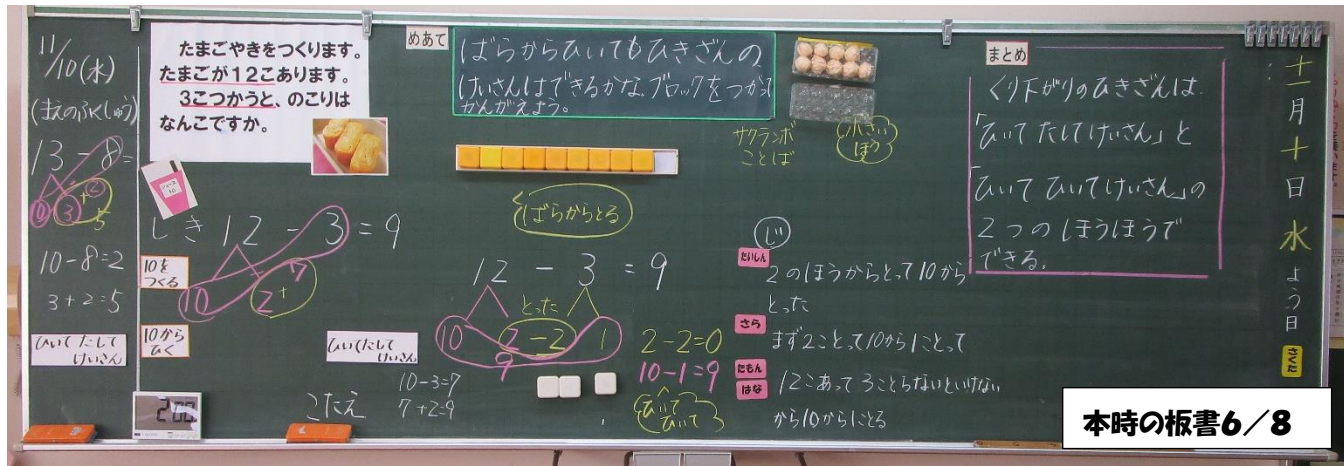 11/10(水)
(まえのふくしゅう)
13-8=
10 3 +2
5
10-8=2
3+2=5
ひいて たして
けいさん
たまごやきをつくります。
たまごが12こあります。
3こつかうと、のこりは
なんこですか。
しき 12-3=9
10 2+7
10を
つくる
10から
ひく
200
ひいてたして
けいさん
10-3=7
7+2=9
こたえ
めあて
ばらからひいてもひきざんの
けいさんはできるかな。ブロックをつかって
かんがえよう。
ばらからとる
12-3=9
とった
10 2-2 1
9
2-2=0
10-1=9
ひいて
ひいて
サクランボ
ことば
小さい
ほう
じ
たいしん
2のほうからとって10から
とった
さら
まず2ことって10から1ことって
たもん
はな
12こあって3ことらないといけない
から10から1ことる
まとめ
くり下がりのひきざんは、
「ひいて たしてけいさん」と
「ひいて ひいてけいさん」の
2つのほうほうで
できる。
十一月十日水よう日
さくね
本時の板書6/8